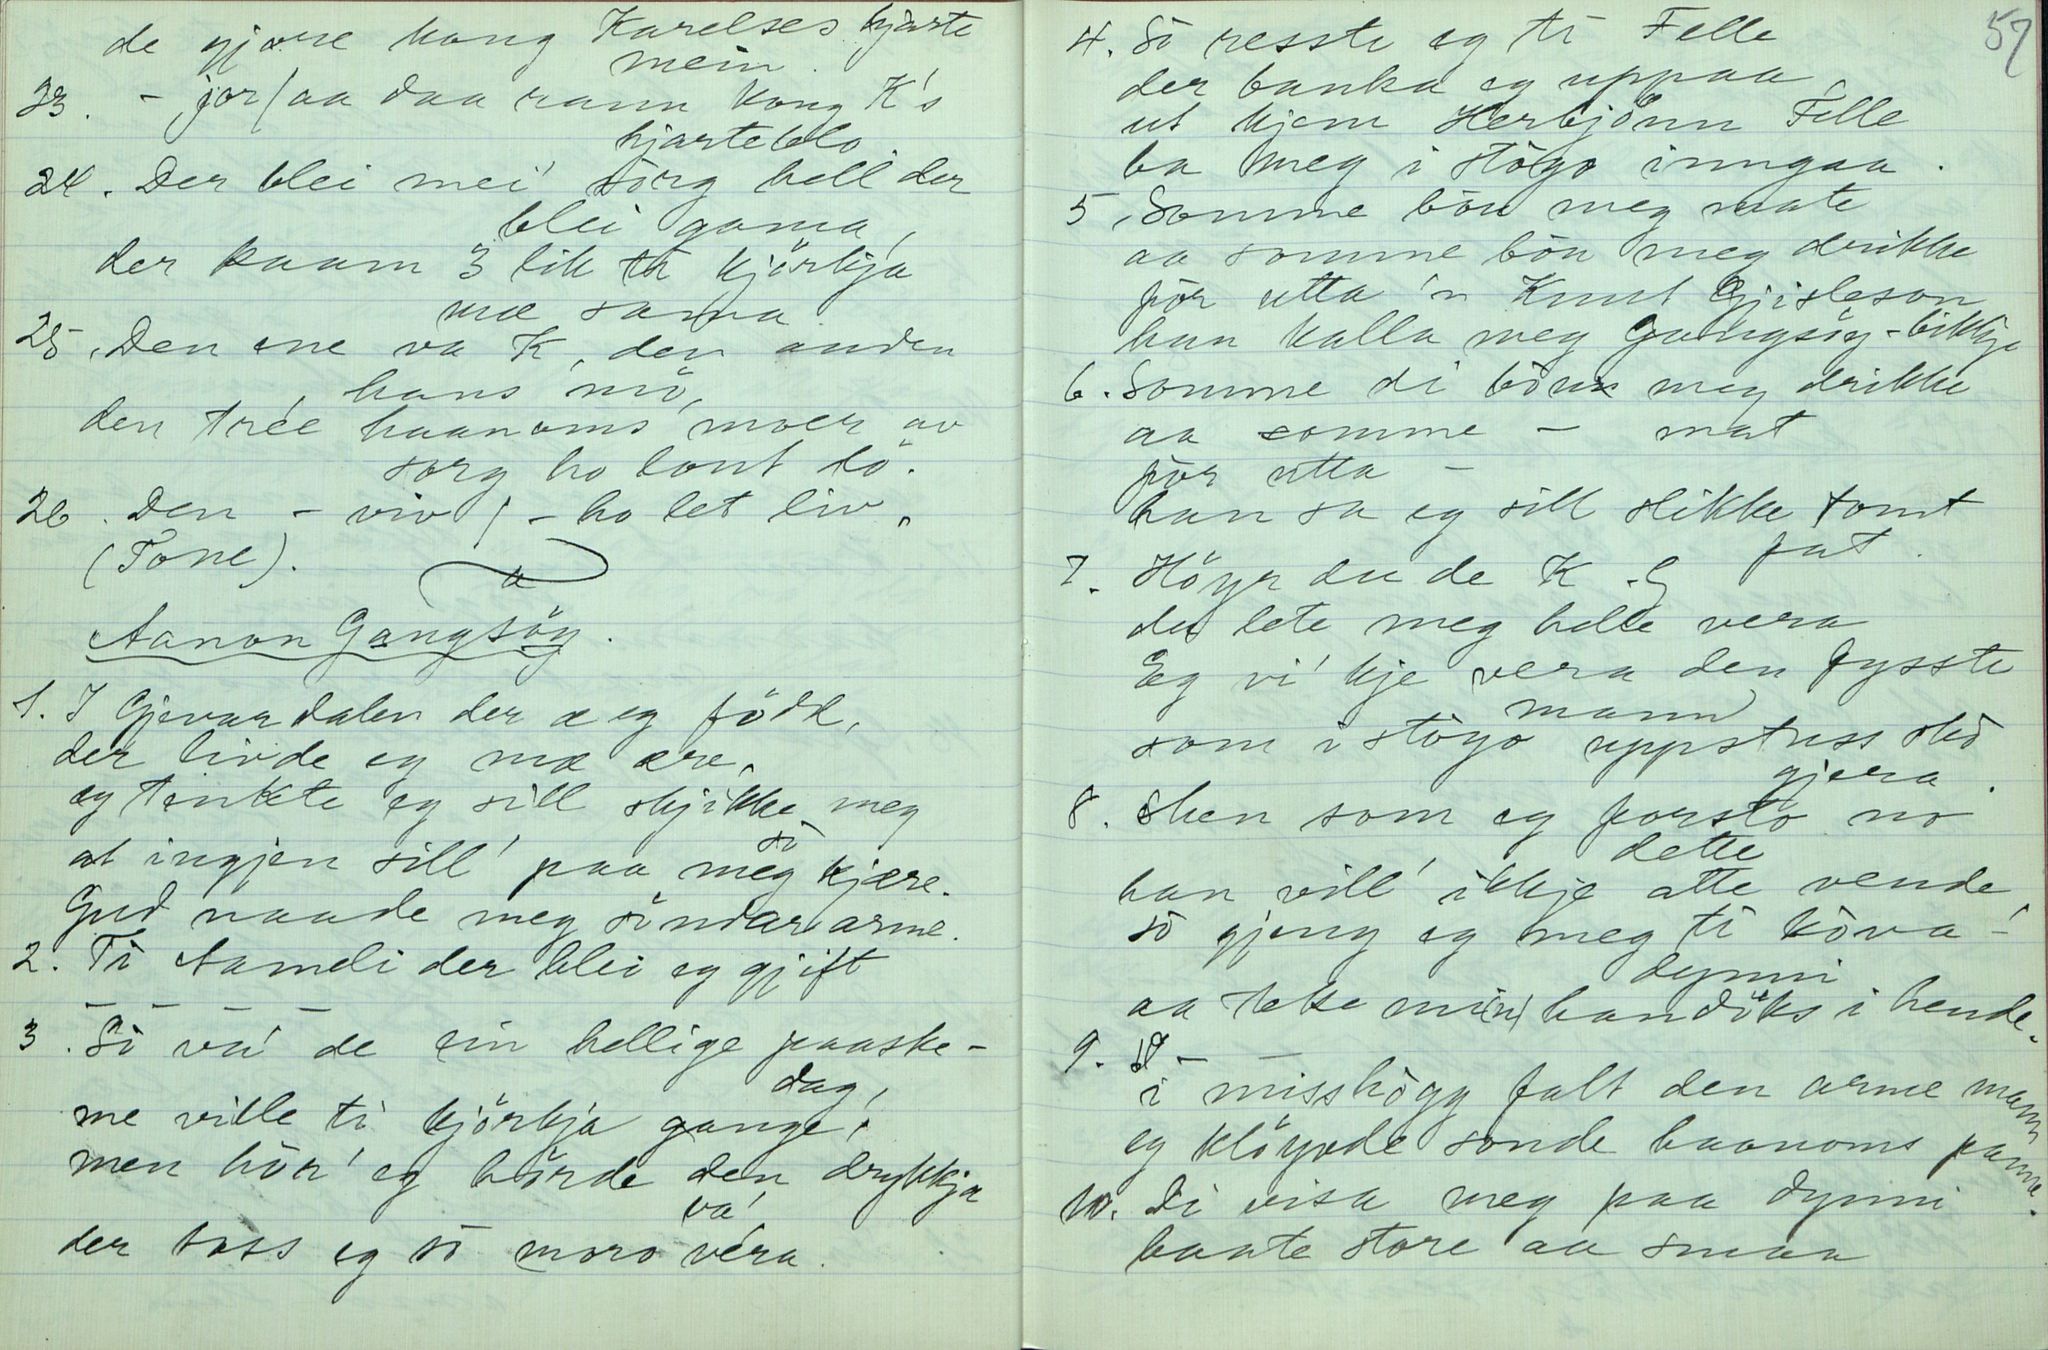 de gjære kong Karelses hjarte
mein.
23. - jor/aa daa rann kong K's
hjarteblo.
24. Der blei mei' sorg hell der
blei gama,
der kaam 3 lik ti kjörkja
mæ sama.
25. Den ene va K, den anden
hans mö,
den trée haanoms moer av
sorg ho laut dö.
26. Den - viv / - ho let liv.
(Tone).
Aanon Gangsöy.
1. I Gjevardalen der æ eg född,
der livde eg mæ ære,
eg tenkte eg sill skjikke meg
så
at ingjen sill' paa meg kjære.
Gud naade meg söndar arme.
2. Ti Aamli der blei eg gjift
- - - -
3. Så va' de ein hellige paaske-
dag,
me ville ti kjörkja gange,
men hör' eg hörde den drykkja
va'
der tøss eg så moro véra.
4. Så resste eg ti Felle
der banka eg uppaa
ut kjem Herbjönn Felle
ba meg i stögo inngaa.
5. Somme bön meg mate
aa somme bön meg drikke
för utta 'n Knut Gjisleson
han kalla meg Gangsöy-bikkje
6. Somme di bön meg drikke
aa somme - mat
för utta -
han sa eg sill slikke tomt
fat.
7. Höyr du de K. G
du lete meg helle vera
Eg vi' kje vera den fysste
mann
som i stögo uppstuss ska
gjera.
8. Men som eg forsto no
dette
han vill' ikkje atte vende,
så gjeng eg meg ti köva-
dynni
aa teke mi(n) handöks i hende.
9. D - -
i misshögg falt den arme mann
eg klöyvde sonde haanoms panne.
10. Di visa meg paa dynni
baate store aa smaa
57